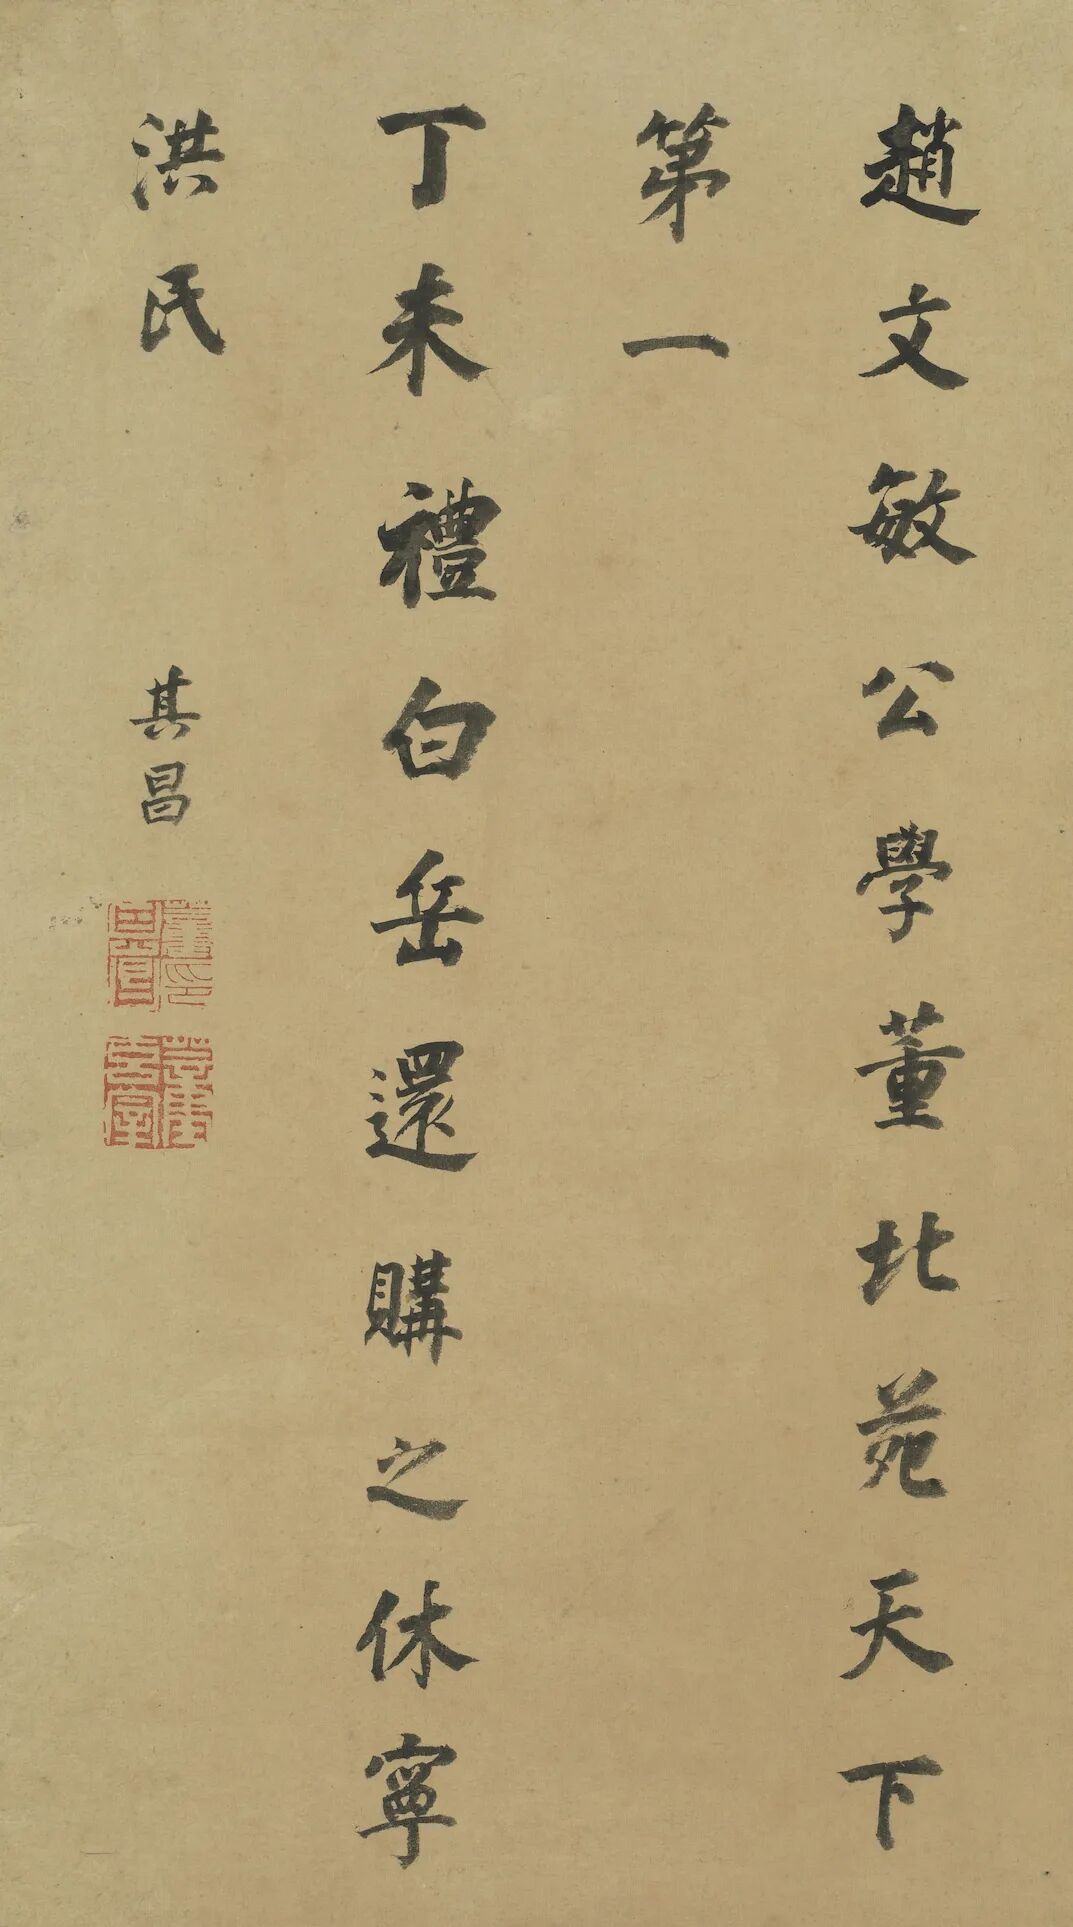 趙文敏公學董北苑天下
第一
丁未禮白岳還購之休寧
洪氏
其昌